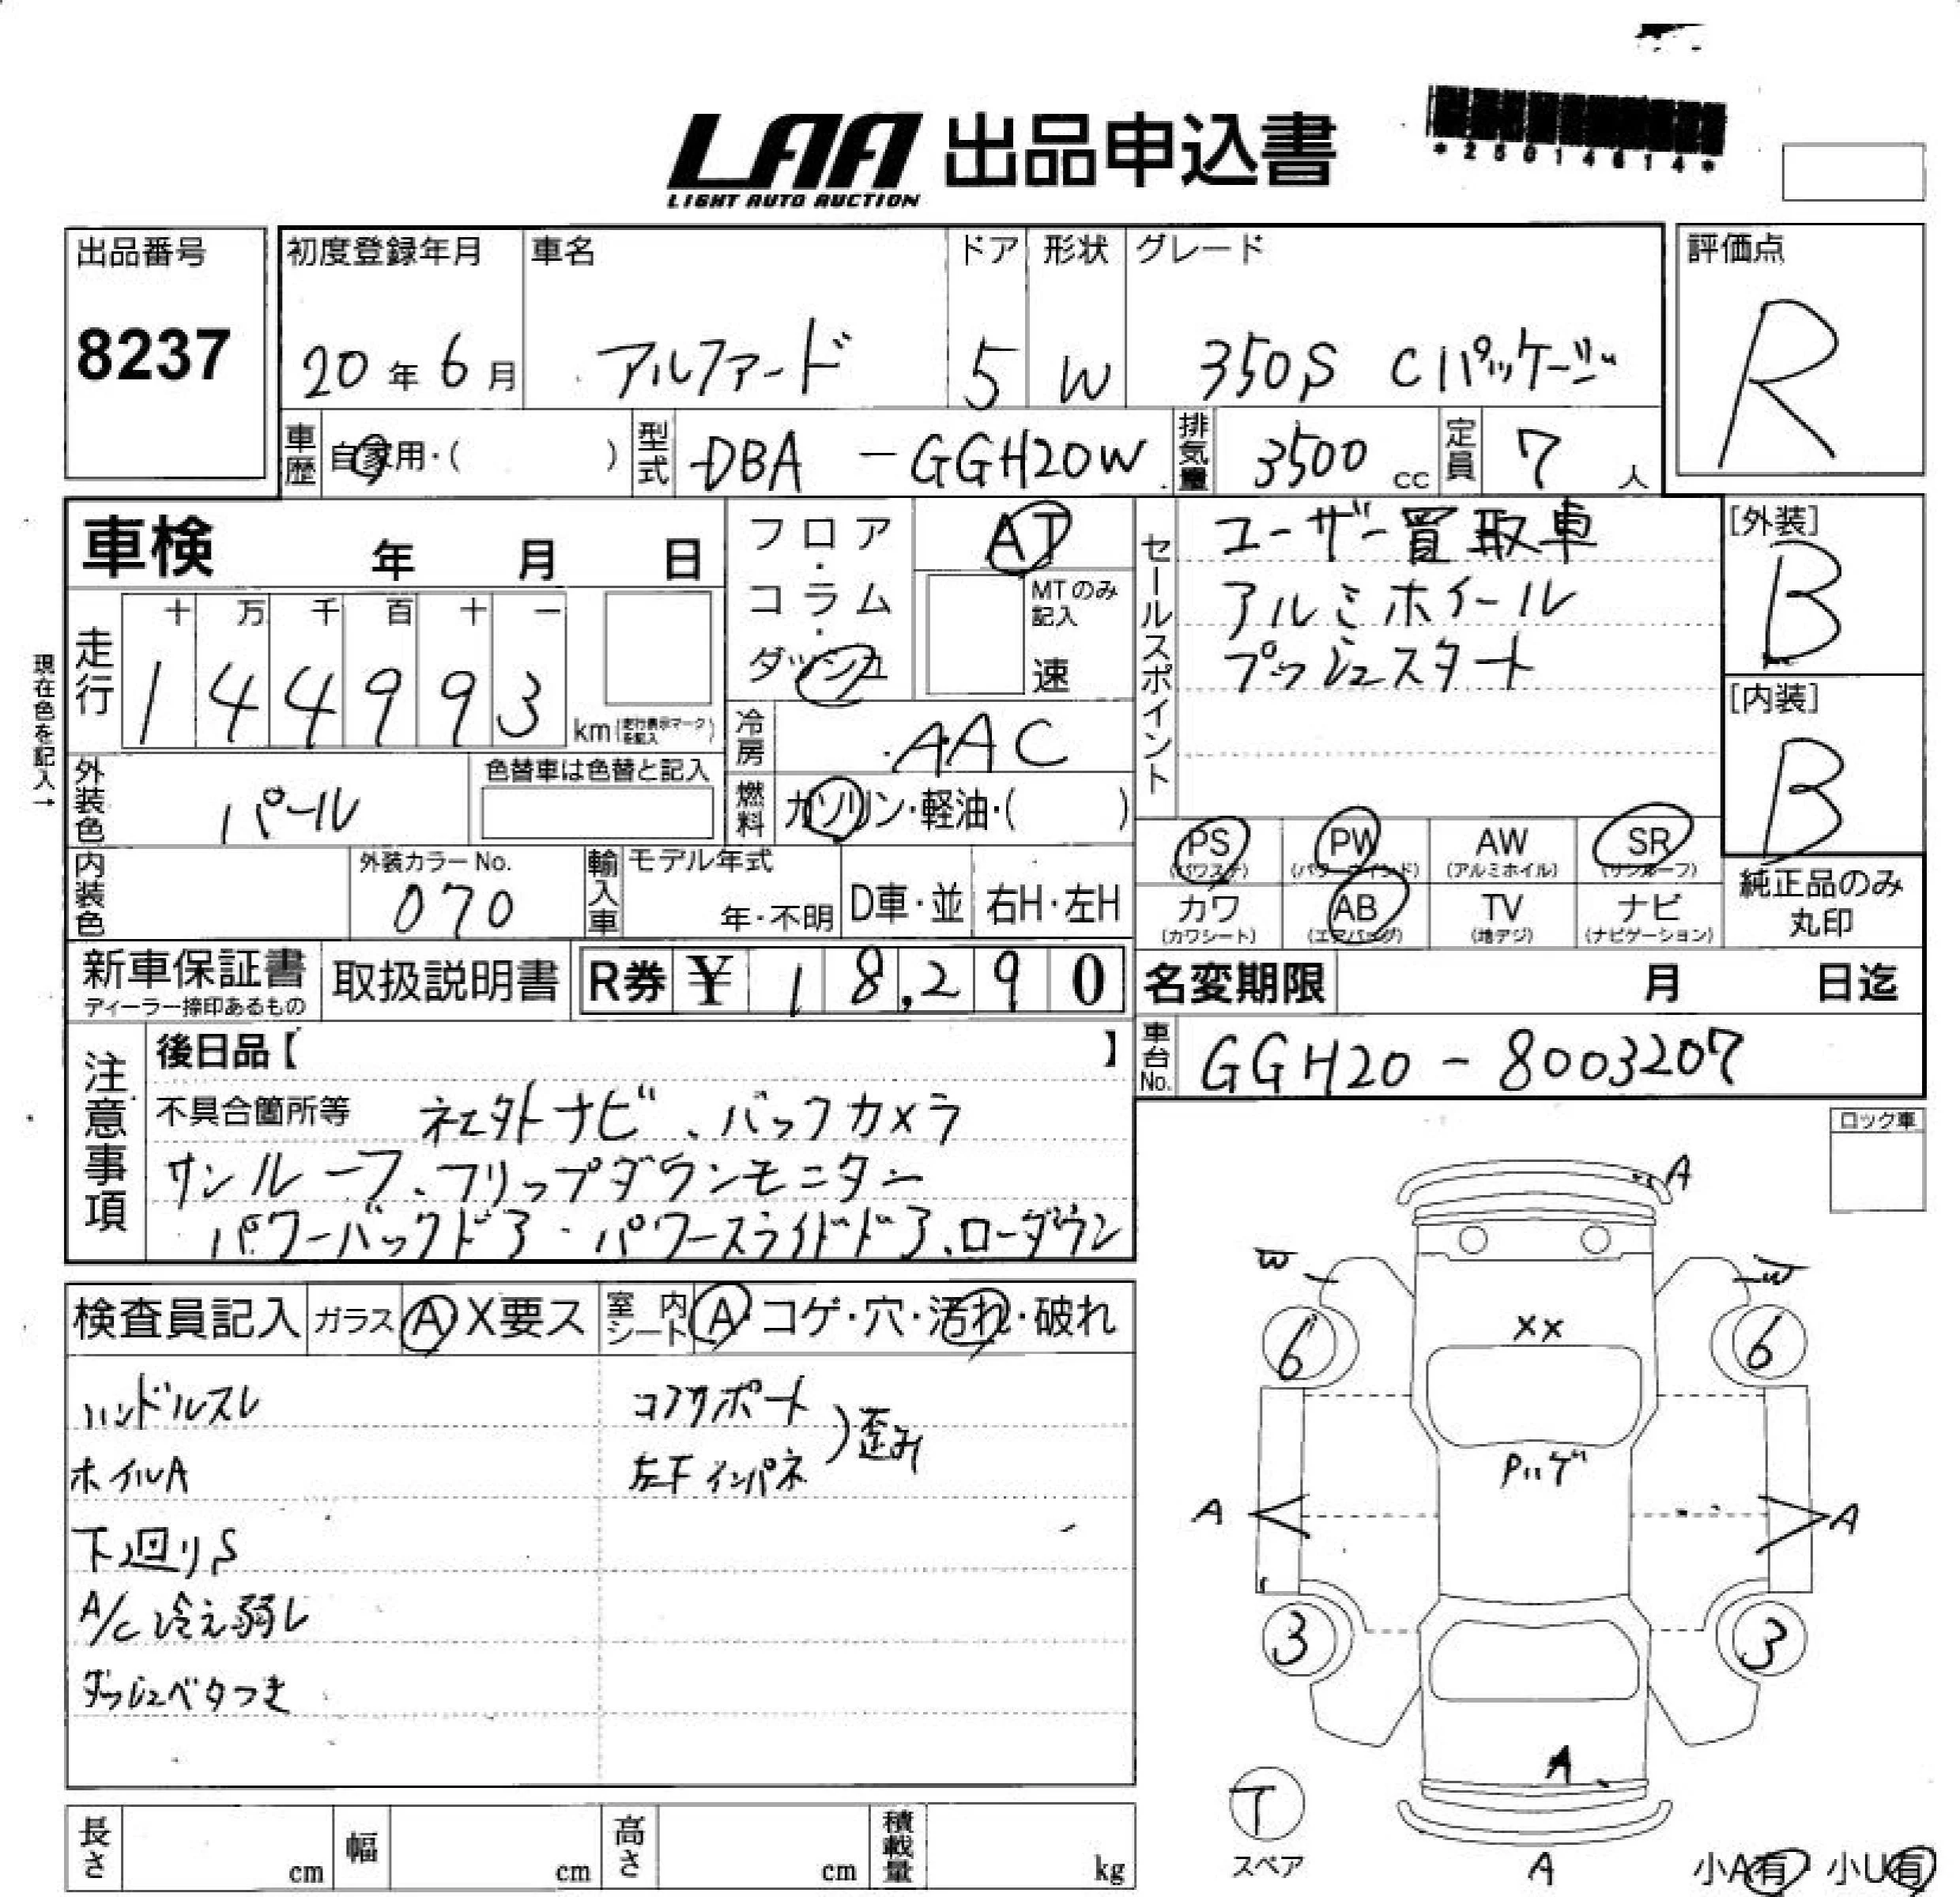 LAA 出品申込書
LIGHT AUTO AUCTION
*25014614*
出品番号
8237
初度登録年月
20年6月
車名
アルファード
ドア
5
形状
W
グレード
350S Cパッケージ
評価点
R
車歴
自家用・( )
型式
DBA - GGH20W
排気量
3500 cc
定員
7 人
車検 年 月 日
走行
十 万 千 百 十 一
1 4 4 9 9 3 km(走行表示マークを記入)
現在色を記入→
フロア・コラム・ダッシュ
AT
MTのみ記入
速
冷房
AAC
燃料
ガソリン・軽油・( )
セールスポイント
ユーザー買取車
アルミホイール
プッシュスタート
[外装]
B
[内装]
B
外装色
パール
色替車は色替と記入
内装色
外装カラーNo.
070
輸入車
モデル年式
年・不明
D車・並
右H・左H
PS (パワステ)
PW (パワーウインド)
AW (アルミホイル)
SR (サンルーフ)
カワ (カワシート)
AB (エアバッグ)
TV (地デジ)
ナビ (ナビゲーション)
純正品のみ丸印
新車保証書
ディーラー捺印あるもの
取扱説明書
R券 ¥ 18,290
名変期限 月 日迄
車台No.
GGH20 - 8003207
注意事項
後日品【 】
不具合箇所等 社外ナビ、バックカメラ
サンルーフ、フリップダウンモニター
パワーバックドア・パワースライドドア、ローダウン
ロック車
検査員記入
ガラス A X要ス
室内シート A・コゲ・穴・汚れ・破れ
ハンドルスレ
ホイルA
下廻りS
A/C 冷え弱し
ダッシュベタつき
コアサポート
左F インパネ
) 歪み
A
W W
XX
6 6
Pハゲ
A A
3 3
A
T
スペア
A
小A有・小U有
長さ cm
幅 cm
高さ cm
積載量 kg